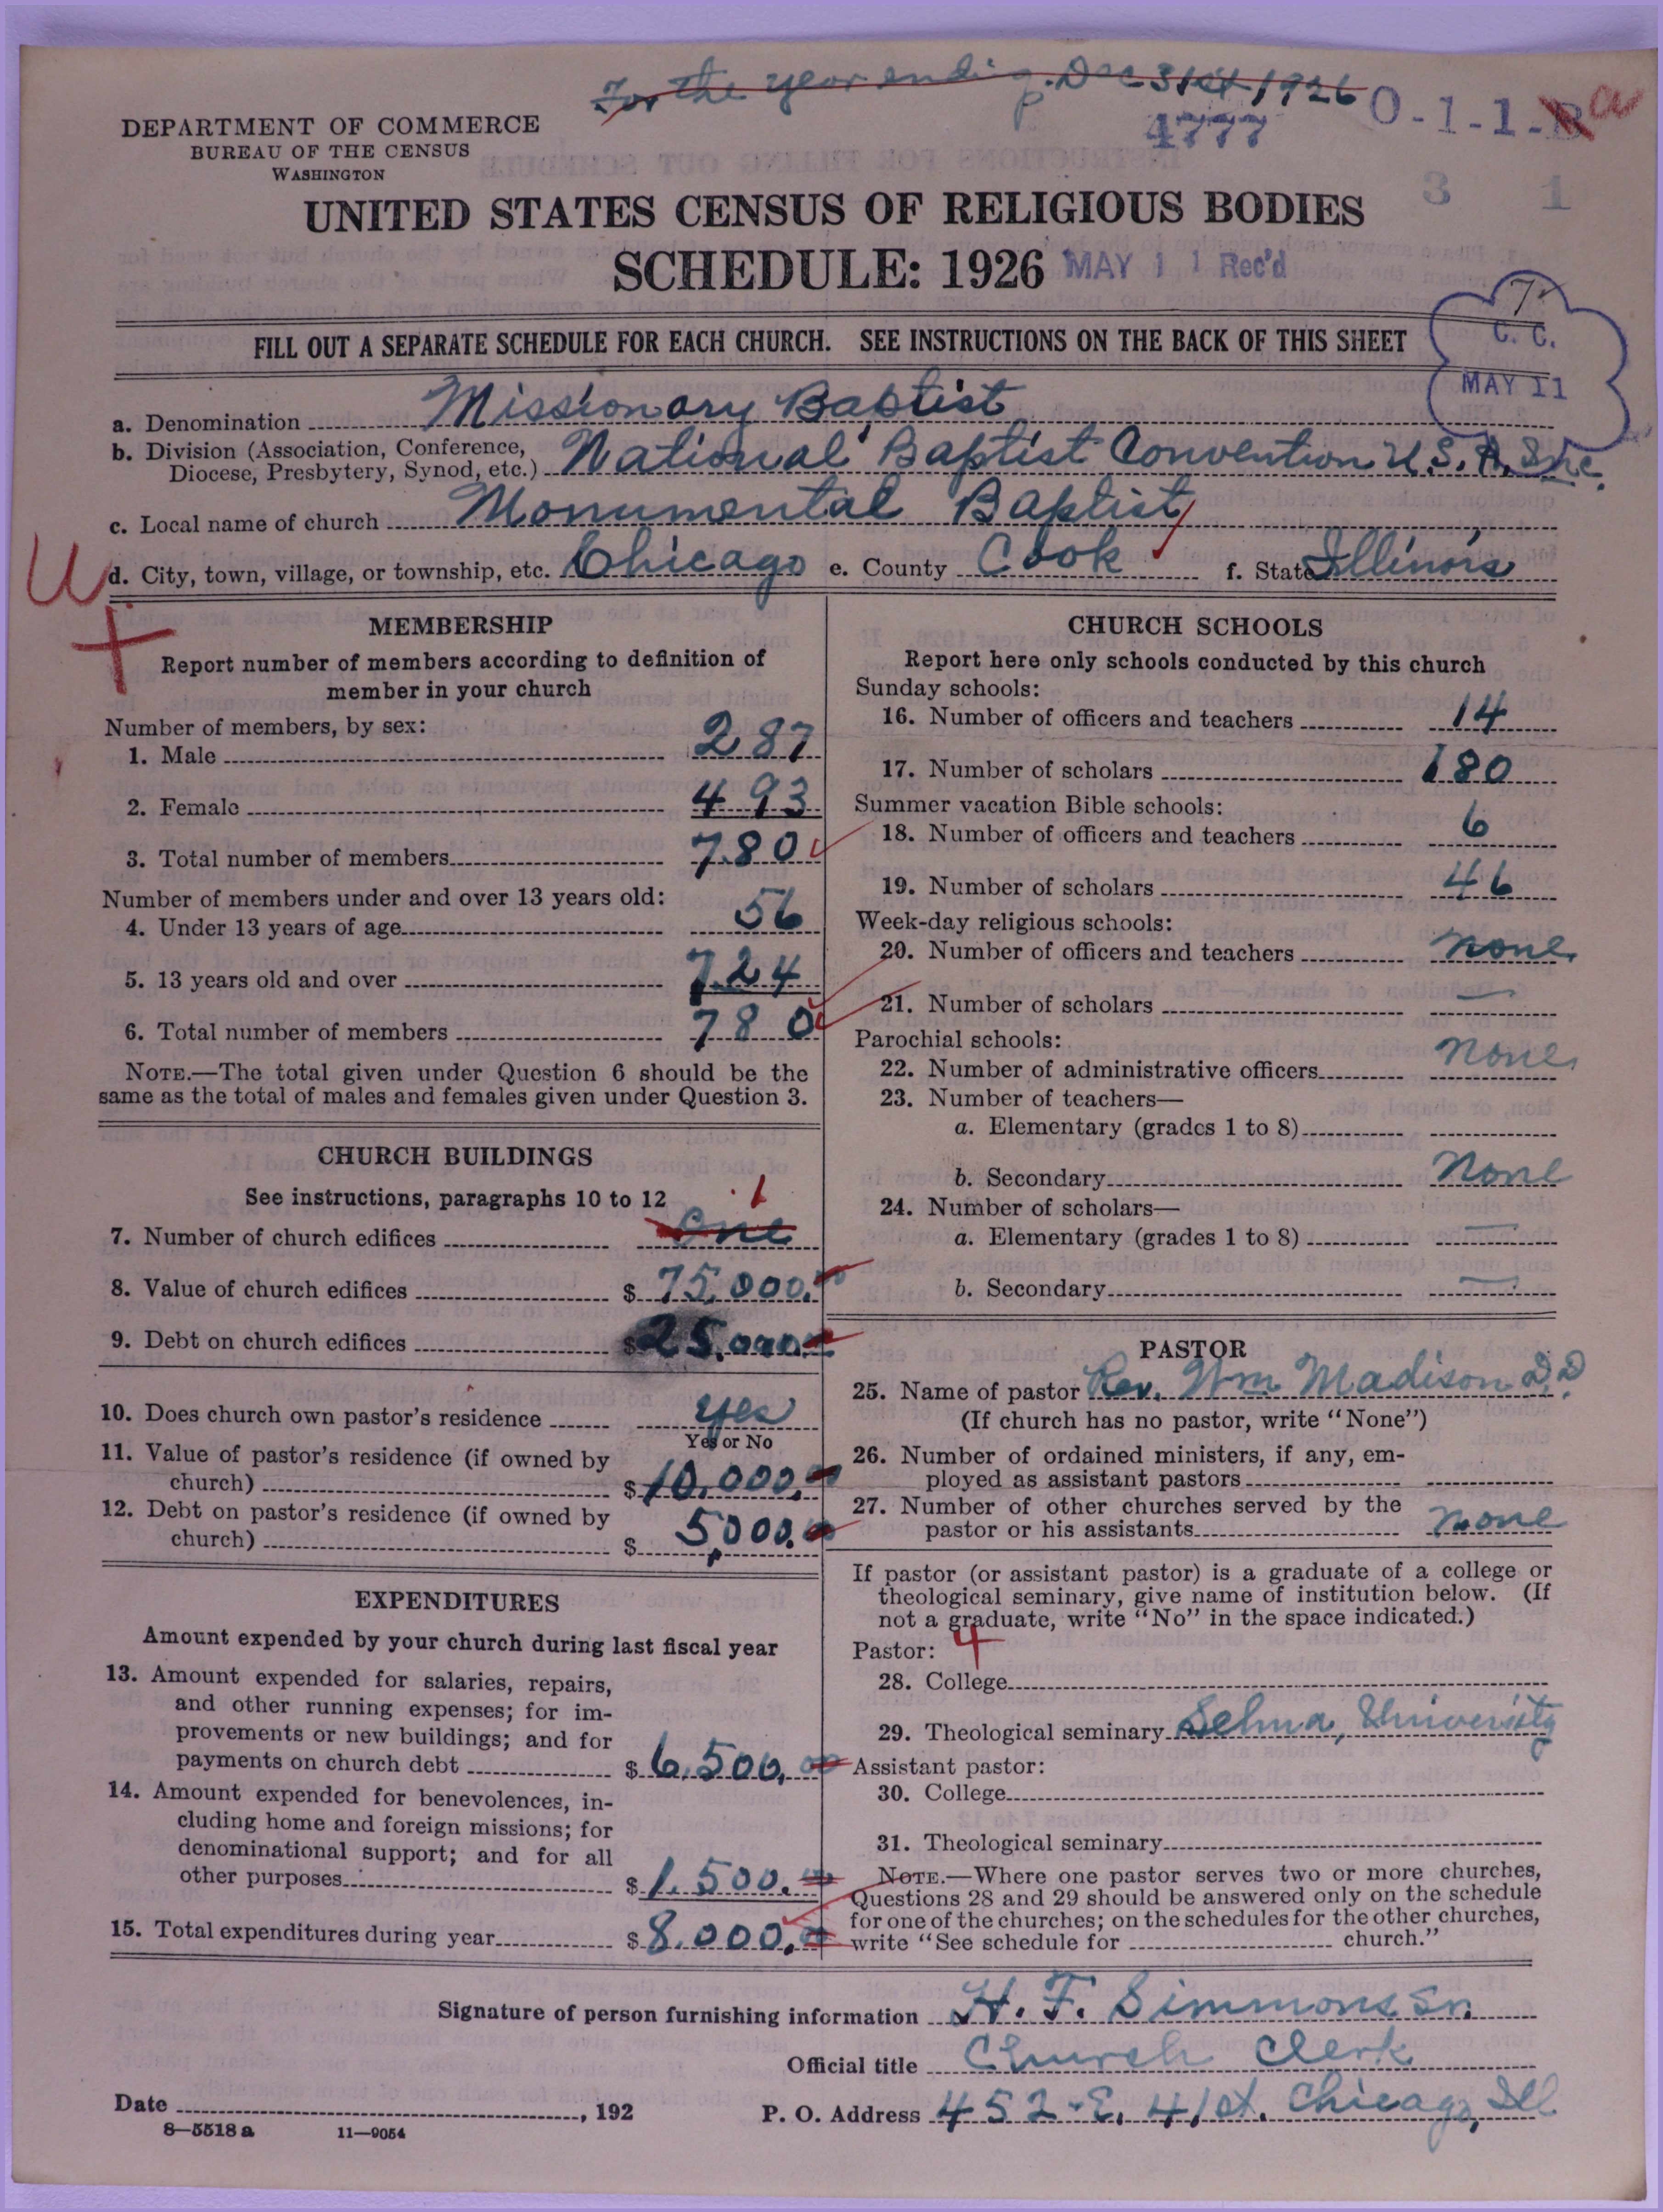 For the year ending Dec 31st 1926
4777
O-1-1-B a
DEPARTMENT OF COMMERCE
BUREAU OF THE CENSUS
WASHINGTON
3 1
UNITED STATES CENSUS OF RELIGIOUS BODIES
SCHEDULE: 1926
MAY 11 Rec'd
7
C. C.
MAY 11
FILL OUT A SEPARATE SCHEDULE FOR EACH CHURCH. SEE INSTRUCTIONS ON THE BACK OF THIS SHEET
a. Denomination Missionary Baptist
b. Division (Association, Conference,
Diocese, Presbytery, Synod, etc.) National Baptist Convention U.S.A. Inc.
c. Local name of church Monumental Baptist
d. City, town, village, or township, etc. Chicago e. County Cook f. State Illinois
MEMBERSHIP
Report number of members according to definition of
member in your church
Number of members, by sex:
1. Male 287
2. Female 493
3. Total number of members 780
Number of members under and over 13 years old:
4. Under 13 years of age 56
5. 13 years old and over 724
6. Total number of members 780
NOTE.—The total given under Question 6 should be the
same as the total of males and females given under Question 3.
CHURCH BUILDINGS
See instructions, paragraphs 10 to 12
1
7. Number of church edifices One
8. Value of church edifices $ 75,000.00
9. Debt on church edifices $ 25,000.00
10. Does church own pastor's residence yes
Yes or No
11. Value of pastor's residence (if owned by
church) $ 10,000.00
12. Debt on pastor's residence (if owned by
church) $ 5,000.00
EXPENDITURES
Amount expended by your church during last fiscal year
13. Amount expended for salaries, repairs,
and other running expenses; for im-
provements or new buildings; and for
payments on church debt $ 6,500.00
14. Amount expended for benevolences, in-
cluding home and foreign missions; for
denominational support; and for all
other purposes $ 1,500.00
15. Total expenditures during year $ 8,000.00
CHURCH SCHOOLS
Report here only schools conducted by this church
Sunday schools:
16. Number of officers and teachers 14
17. Number of scholars 180
Summer vacation Bible schools:
18. Number of officers and teachers 6
19. Number of scholars 46
Week-day religious schools:
20. Number of officers and teachers none
21. Number of scholars —
Parochial schools:
22. Number of administrative officers none
23. Number of teachers—
a. Elementary (grades 1 to 8)
b. Secondary none
24. Number of scholars—
a. Elementary (grades 1 to 8) —
b. Secondary —
PASTOR
25. Name of pastor Rev. Wm Madison D.D.
(If church has no pastor, write "None")
26. Number of ordained ministers, if any, em-
ployed as assistant pastors
27. Number of other churches served by the
pastor or his assistants none
If pastor (or assistant pastor) is a graduate of a college or
theological seminary, give name of institution below. (If
not a graduate, write "No" in the space indicated.)
Pastor: 4
28. College
29. Theological seminary Selma, University
Assistant pastor:
30. College
31. Theological seminary
NOTE.—Where one pastor serves two or more churches,
Questions 28 and 29 should be answered only on the schedule
for one of the churches; on the schedules for the other churches,
write "See schedule for church."
Signature of person furnishing information H. F. Simmons Sr.
Official title Church Clerk
Date , 192
P. O. Address 452-E. 41st. Chicago, Ill
8—5518 a 11—9054